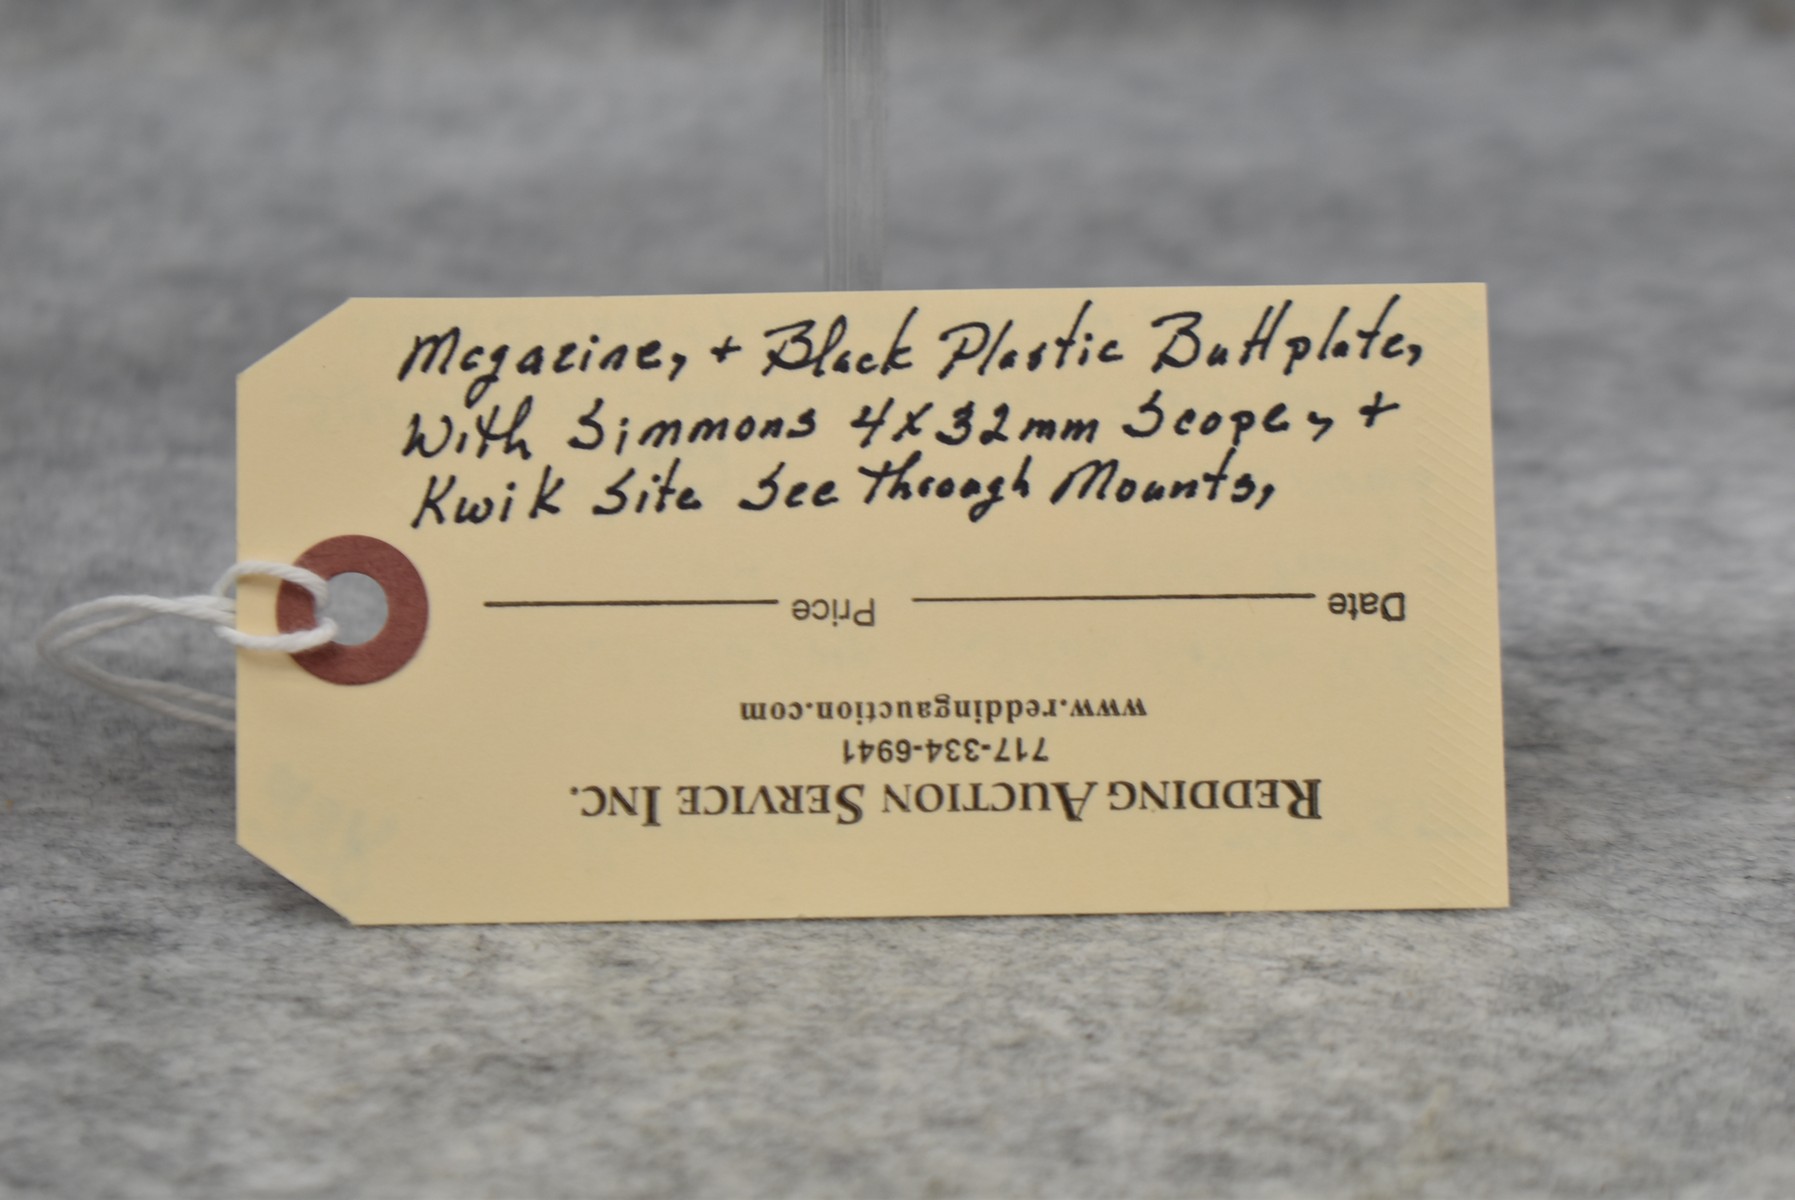 Magazine, + Black Plastic Buttplate,
With Simmons 4x32mm Scope, +
Kwik Site See Through Mounts,
Date Price
www.reddingauction.com
717-334-6941
REDDING AUCTION SERVICE INC.